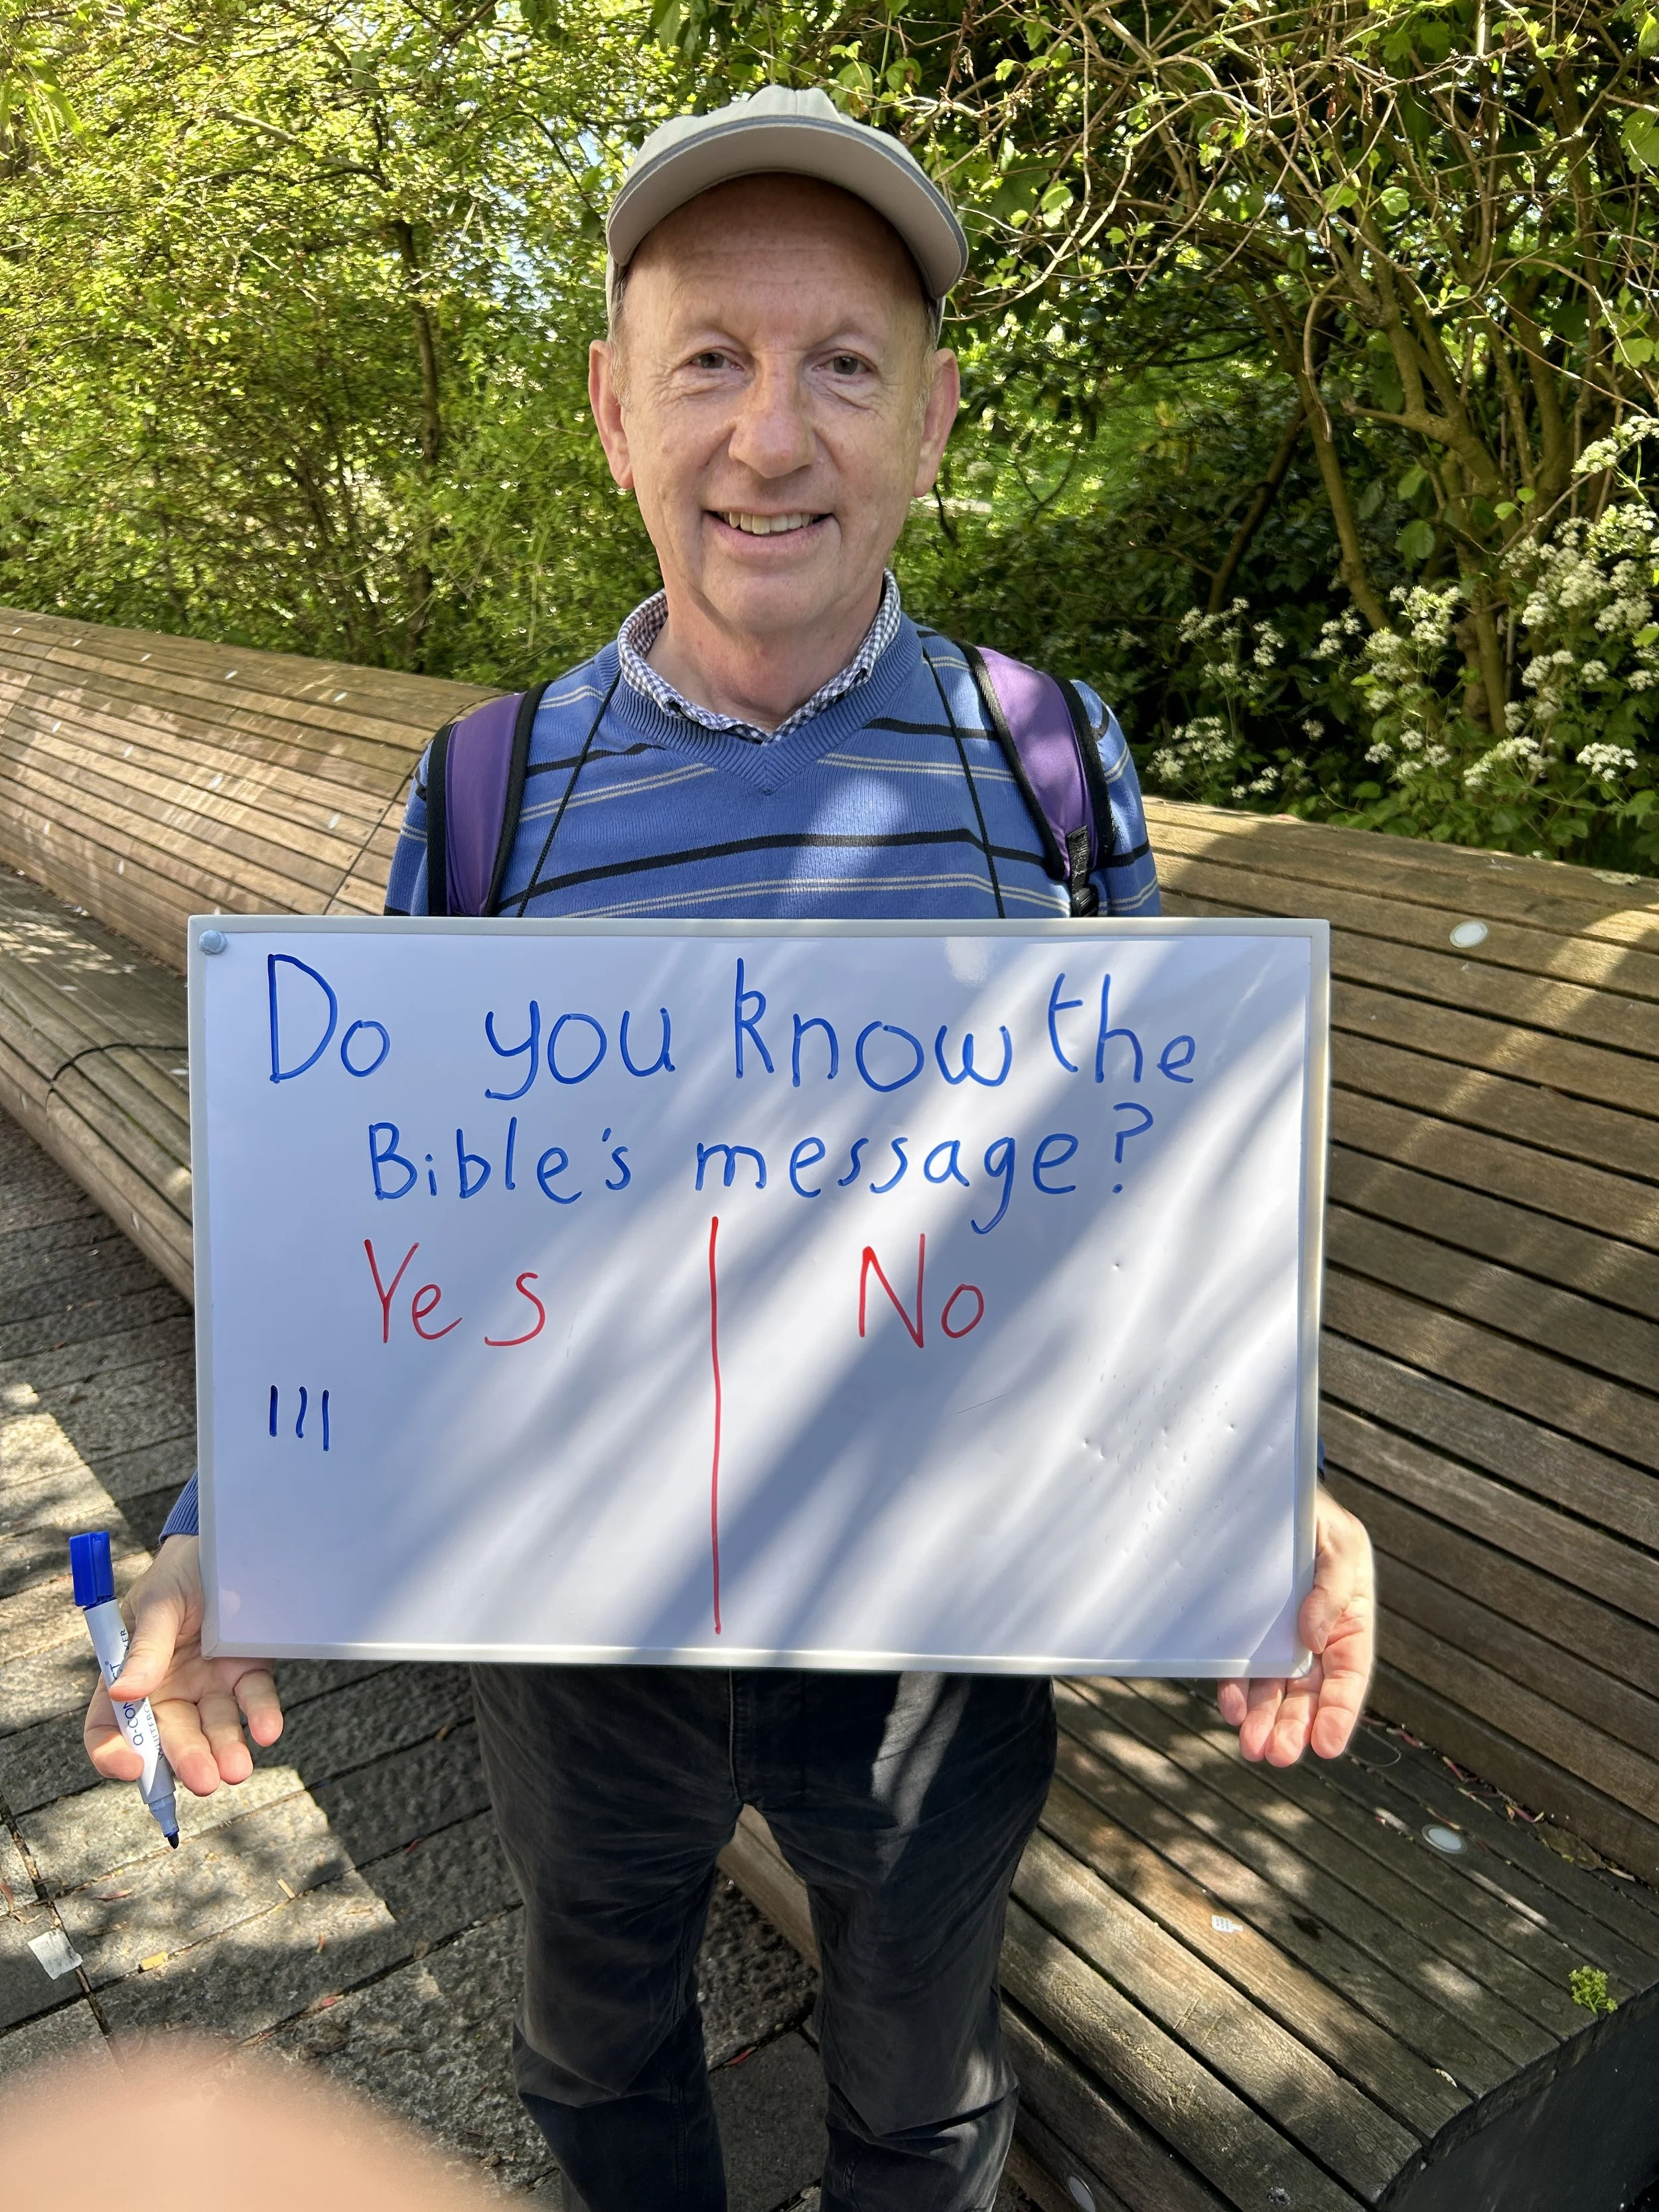 Do you know the
Bible's message?
Yes | No
III